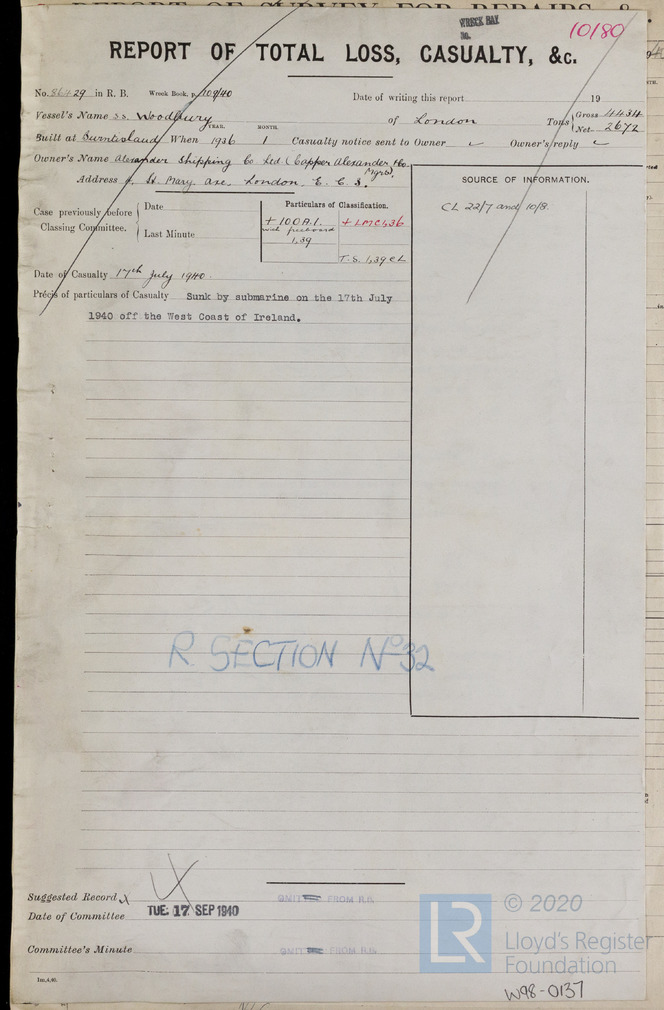 WRECK BAY
No.
10/80
REPORT OF TOTAL LOSS, CASUALTY, &c.
No. 86429 in R. B. Wreck Book, p. 109/40 Date of writing this report 19
Vessel's Name S.S. Woodbury of London Tons Gross 4434
Net 2672
YEAR. MONTH.
Built at Burntisland When 1936 1 Casualty notice sent to Owner ✓ Owner's reply ✓
Owner's Name Alexander Shipping Co Ltd (Capper Alexander & Co. Mgrs)
Address St. Mary Axe, London, E. C. 3.
SOURCE OF INFORMATION.
CL 22/7 and 10/8.
Case previously before Classing Committee.
Date
Last Minute
Particulars of Classification.
+ 100A.1. + LMC 1,36
with freeboard
1,39
T.S. 1,39 CL
Date of Casualty 17th July 1940.
Précis of particulars of Casualty Sunk by submarine on the 17th July
1940 off the West Coast of Ireland.
R. SECTION No 32
Suggested Record
Date of Committee TUE. 17 SEP 1940
Committee's Minute
FROM R.B.
FROM R.B.
Im,4,40.
LR
© 2020
Lloyd's Register
Foundation
W98-0137